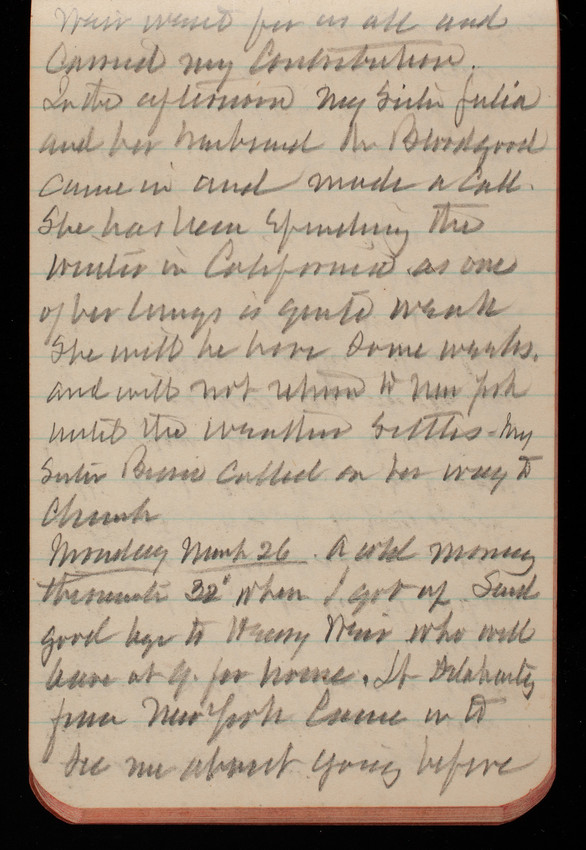 Weir went for us all and
carried my contribution.
In the afternoon my sister Julia
and her husband Mr Bloodgood
came in and made a call.
She has been spending the
winter in California as one
of her lungs is quite weak
She will be here some weeks.
and will not return to New York
until the weather settles. My
sister Bessie called on her way to
Church
Monday March 26. A cold morning
thermometer 32° when I got up. Said
good bye to Henry Weir who will
leave at 9. for home. Lt Delaharty
from New York came in to
see me about going before